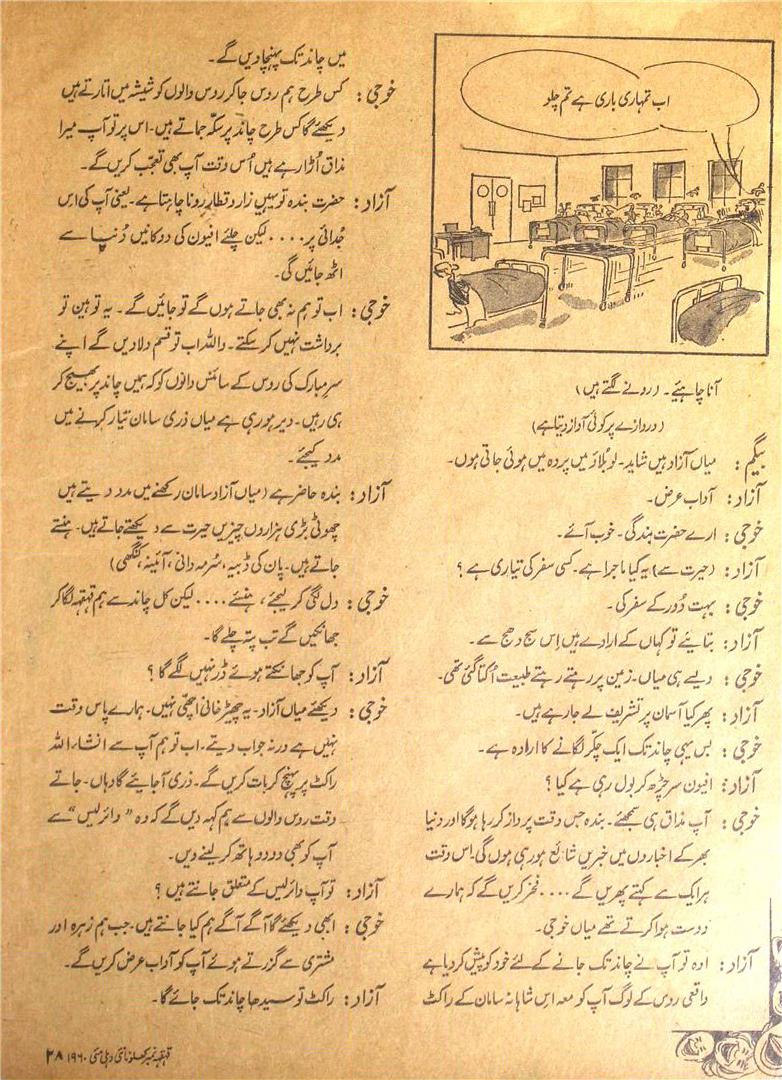 اب تمہاری باری ہے تم چلو
آنا چاہیئے۔ (رونے لگتے ہیں)
(دروازے پر کوئی آواز دیتا ہے)
بیگم: میاں آزاد ہیں شاید۔ لو بلاؤ میں پردہ میں ہوئی جاتی ہوں۔
آزاد: آداب عرض۔
خوجی: ارے حضرت بندگی۔ خوب آئے۔
آزاد: (حیرت سے) یہ کیا ماجرا ہے۔ کسی سفر کی تیاری ہے؟
خوجی: بہت دُور کے سفر کی۔
آزاد: بتایئے تو کہاں کے ارادے ہیں اِس سج دھج سے۔
خوجی: ویسے ہی میاں۔ زمین پر رہتے رہتے طبیعت اُکتا گئی تھی۔
آزاد: پھر کیا آسمان پر تشریف لے جا رہے ہیں۔
خوجی: بس یہی چاند تک ایک چکّر لگانے کا ارادہ ہے۔
آزاد: افیون سر چڑھ کر بول رہی ہے کیا؟
خوجی: آپ مذاق ہی سمجھئے۔ بندہ جس وقت پرواز کر رہا ہوگا اور دنیا
بھر کے اخباروں میں خبریں شائع ہو رہی ہوں گی۔ اس وقت
ہر ایک سے کہتے پھریں گے .... فخر کریں گے کہ ہمارے
دوست ہوا کرتے تھے میاں خوجی۔
آزاد: اوہ تو آپ نے چاند تک جانے کے لئے خود کو پیش کر دیا ہے
واقعی روس کے لوگ آپ کو معہ اِس شاہانہ سامان کے راکٹ
میں چاند تک پہنچا دیں گے۔
خوجی: کس طرح ہم روس جا کر روس والوں کو شیشہ میں اتارتے ہیں
دیکھئے گا کس طرح چاند پر سکّہ جماتے ہیں۔ اس پر تو آپ میرا
مذاق اُڑا رہے ہیں اُس وقت آپ بھی تعجّب کریں گے۔
آزاد: حضرت بندہ تو یہیں زار و قطار رونا چاہتا ہے۔ یعنی آپ کی اس
جُدائی پر.... لیکن چلئے افیون کی دوکانیں دُنیا سے
اٹھ جائیں گی۔
خوجی: اب تو ہم نہ بھی جاتے ہوں گے تو جائیں گے۔ یہ توہین تو
برداشت نہیں کر سکتے۔ واللہ اب تو قسم دلا دیں گے اپنے
سرِ مبارک کی روس کے سائنس دانوں کو کہ ہمیں چاند پر بھیج کر
ہی رہیں۔ دیر ہو رہی ہے میاں ذری سامان تیار کرنے میں
مدد کیجئے۔
آزاد: بندہ حاضر ہے (میاں آزاد سامان رکھنے میں مدد دیتے ہیں
چھوٹی بڑی ہزاروں چیزیں حیرت سے دیکھتے جاتے ہیں۔ ہنستے
جاتے ہیں۔ پان کی ڈبیہ، سُرمہ دانی، آئینہ، کنگھی)
خوجی: دل لگی کر لیجئے، ہنسئے .... لیکن کل چاند سے ہم قہقہہ لگا کر
جھانکیں گے تب پتہ چلے گا۔
آزاد: آپ کو جھانکتے ہوئے ڈر نہیں لگے گا؟
خوجی: دیکھئے میاں آزاد۔ یہ چھیڑ خانی اچھی نہیں۔ ہمارے پاس وقت
نہیں ہے ورنہ جواب دیتے۔ اب تو ہم آپ سے انشاء اللہ
راکٹ پر پہنچ کر بات کریں گے۔ ذری آ جایئے گا وہاں۔ جاتے
وقت روس والوں سے ہم کہہ دیں گے کہ وہ "وائرلیس" سے
آپ کو بھی دو دو ہاتھ کر لینے دیں۔
آزاد: تو آپ وائرلیس کے متعلق جانتے ہیں؟
خوجی: ابھی دیکھئے گا آگے آگے ہم کیا جانتے ہیں۔ جب ہم زہرہ اور
مشتری سے گزرتے ہوئے آپ کو آداب عرض کریں گے۔
آزاد: راکٹ تو سیدھا چاند تک جائے گا۔
قہقہہ نمبر کھلونا نئی دہلی مئی ۱۹۶۰ ۲۸